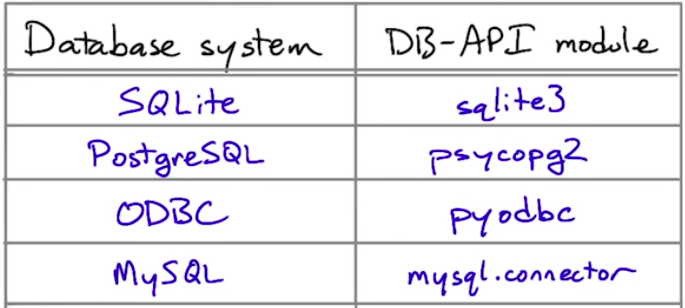 Database system DB-API module
SQLite sqlite3
PostgreSQL psycopg2
ODBC pyodbc
MySQL mysql.connector